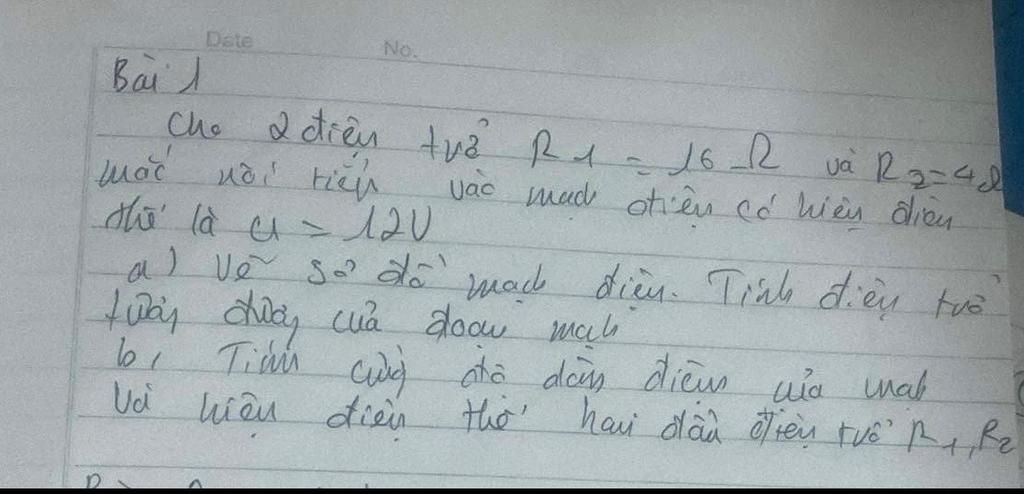 Date No.
Bài 1
Cho 2 điện trở R1 = 16 Ω và R2 = 4Ω
mắc nối tiếp vào mạch điện có hiệu điện
thế là U = 12V
a) Vẽ sơ đồ mạch điện. Tính điện trở
tương đương của đoạn mạch
b, Tính cường độ dòng điện của mạch
và hiệu điện thế hai đầu điện trở R1, R2